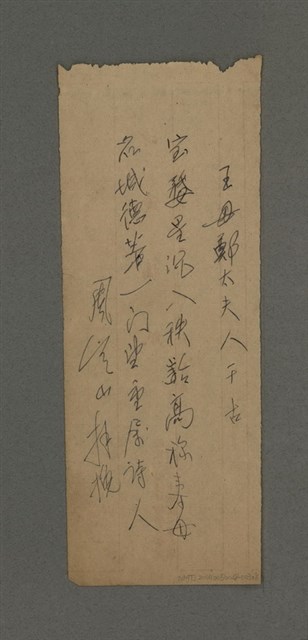 王母鄭太夫人千古
宝婺星沉八秩齡高稱寿母
石城德著一门望重属詩人
周定山拜挽